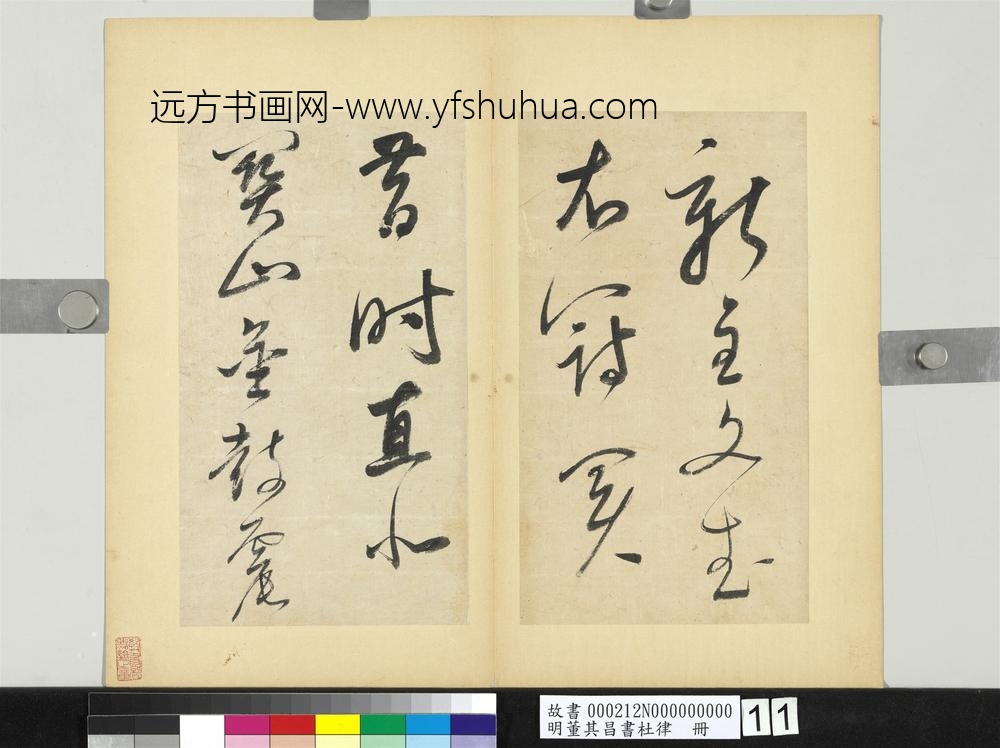 远方书画网-www.yfshuhua.com
新主文武
衣冠異
昔時直北
關山金鼓震
故書 000212N000000000
明董其昌書杜律 冊
11